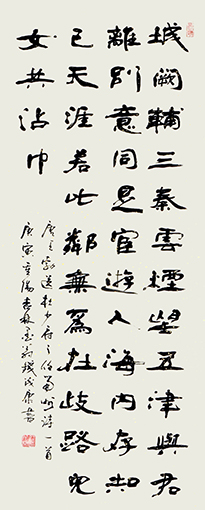 城闕輔三秦雲煙望五津與君
離別意同是宦遊人海內存知
己天涯若比鄰無爲在歧路兒
女共沾巾
唐王勃送杜少府之任蜀州詩一首
庚寅重陽